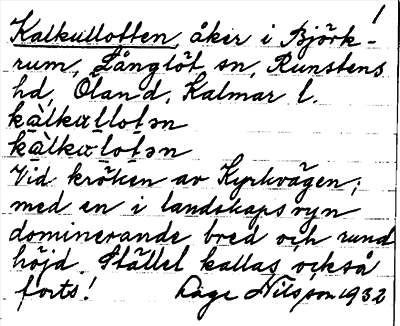 Kalkullotten, åker i Björk-
rum, Långlöt sn, Runstens
hd, Öland, Kalmar l.
kàlkɷllotən
kàlkɷlotən
Vid kröken av Kyrkvägen,
med en i landskapsvyn
dominerande bred och rund
höjd. Stället kallas också
forts!
Åge Nilsson 1932